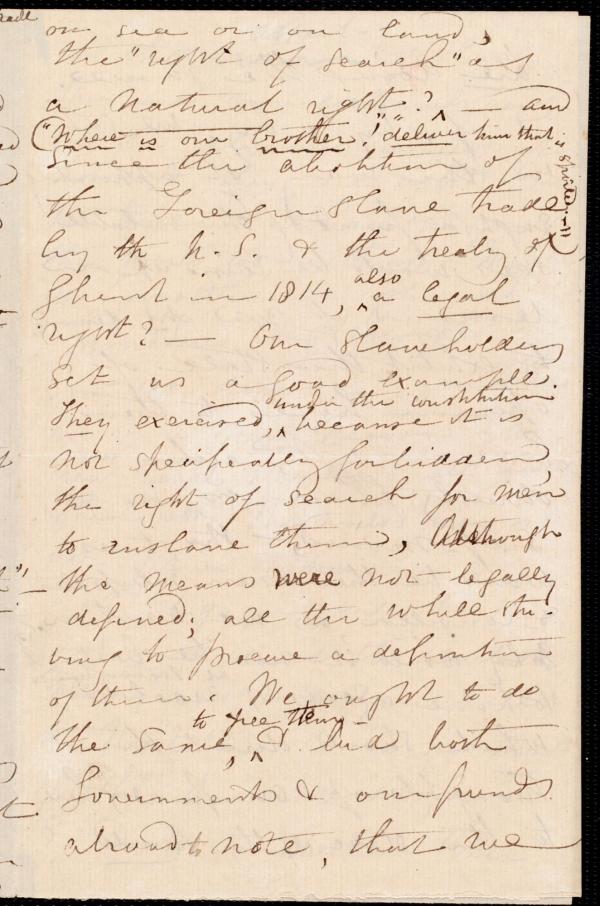 on sea or on land,
the "right of search" as
a Natural right? — and
("Where is our brother!" "deliver him that is spoiled.—")
since the abolition of
the Foreign slave trade
by th U.S. & the treaty of
Ghent in 1814, also a legal
right? — Our slaveholders
set us a good example.
They exercised, under the constitution
because it is
not specifically forbidden,
the right of search for men
to enslave them, Although
the means were not legally
defined; all the while stri-
ving to procure a definition
of them. We ought to do
the same, to free them—
& bid both
Governments & our friends
abroad to note, that we